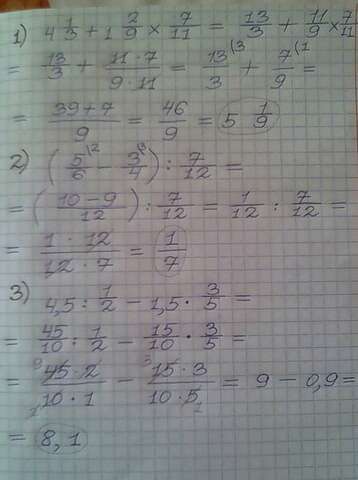 1) 4 1/3 + 1 2/9 × 7/11 = 13/3 + 11/9 × 7/11
= 13/3 + 11·7/9·11 = 13/3 (3 + 7/9 (1 =
= 39+7/9 = 46/9 = 5 1/9
2) (5/6 \2 − 3/4 \3) : 7/12 =
= (10−9/12) : 7/12 = 1/12 : 7/12 =
= 1·12/12·7 = 1/7
3) 4,5 : 1/2 − 1,5 · 3/5 =
= 45/10 : 1/2 − 15/10 · 3/5 =
= 45·2/10·1 − 15·3/10·5 = 9 − 0,9 =
= 8,1